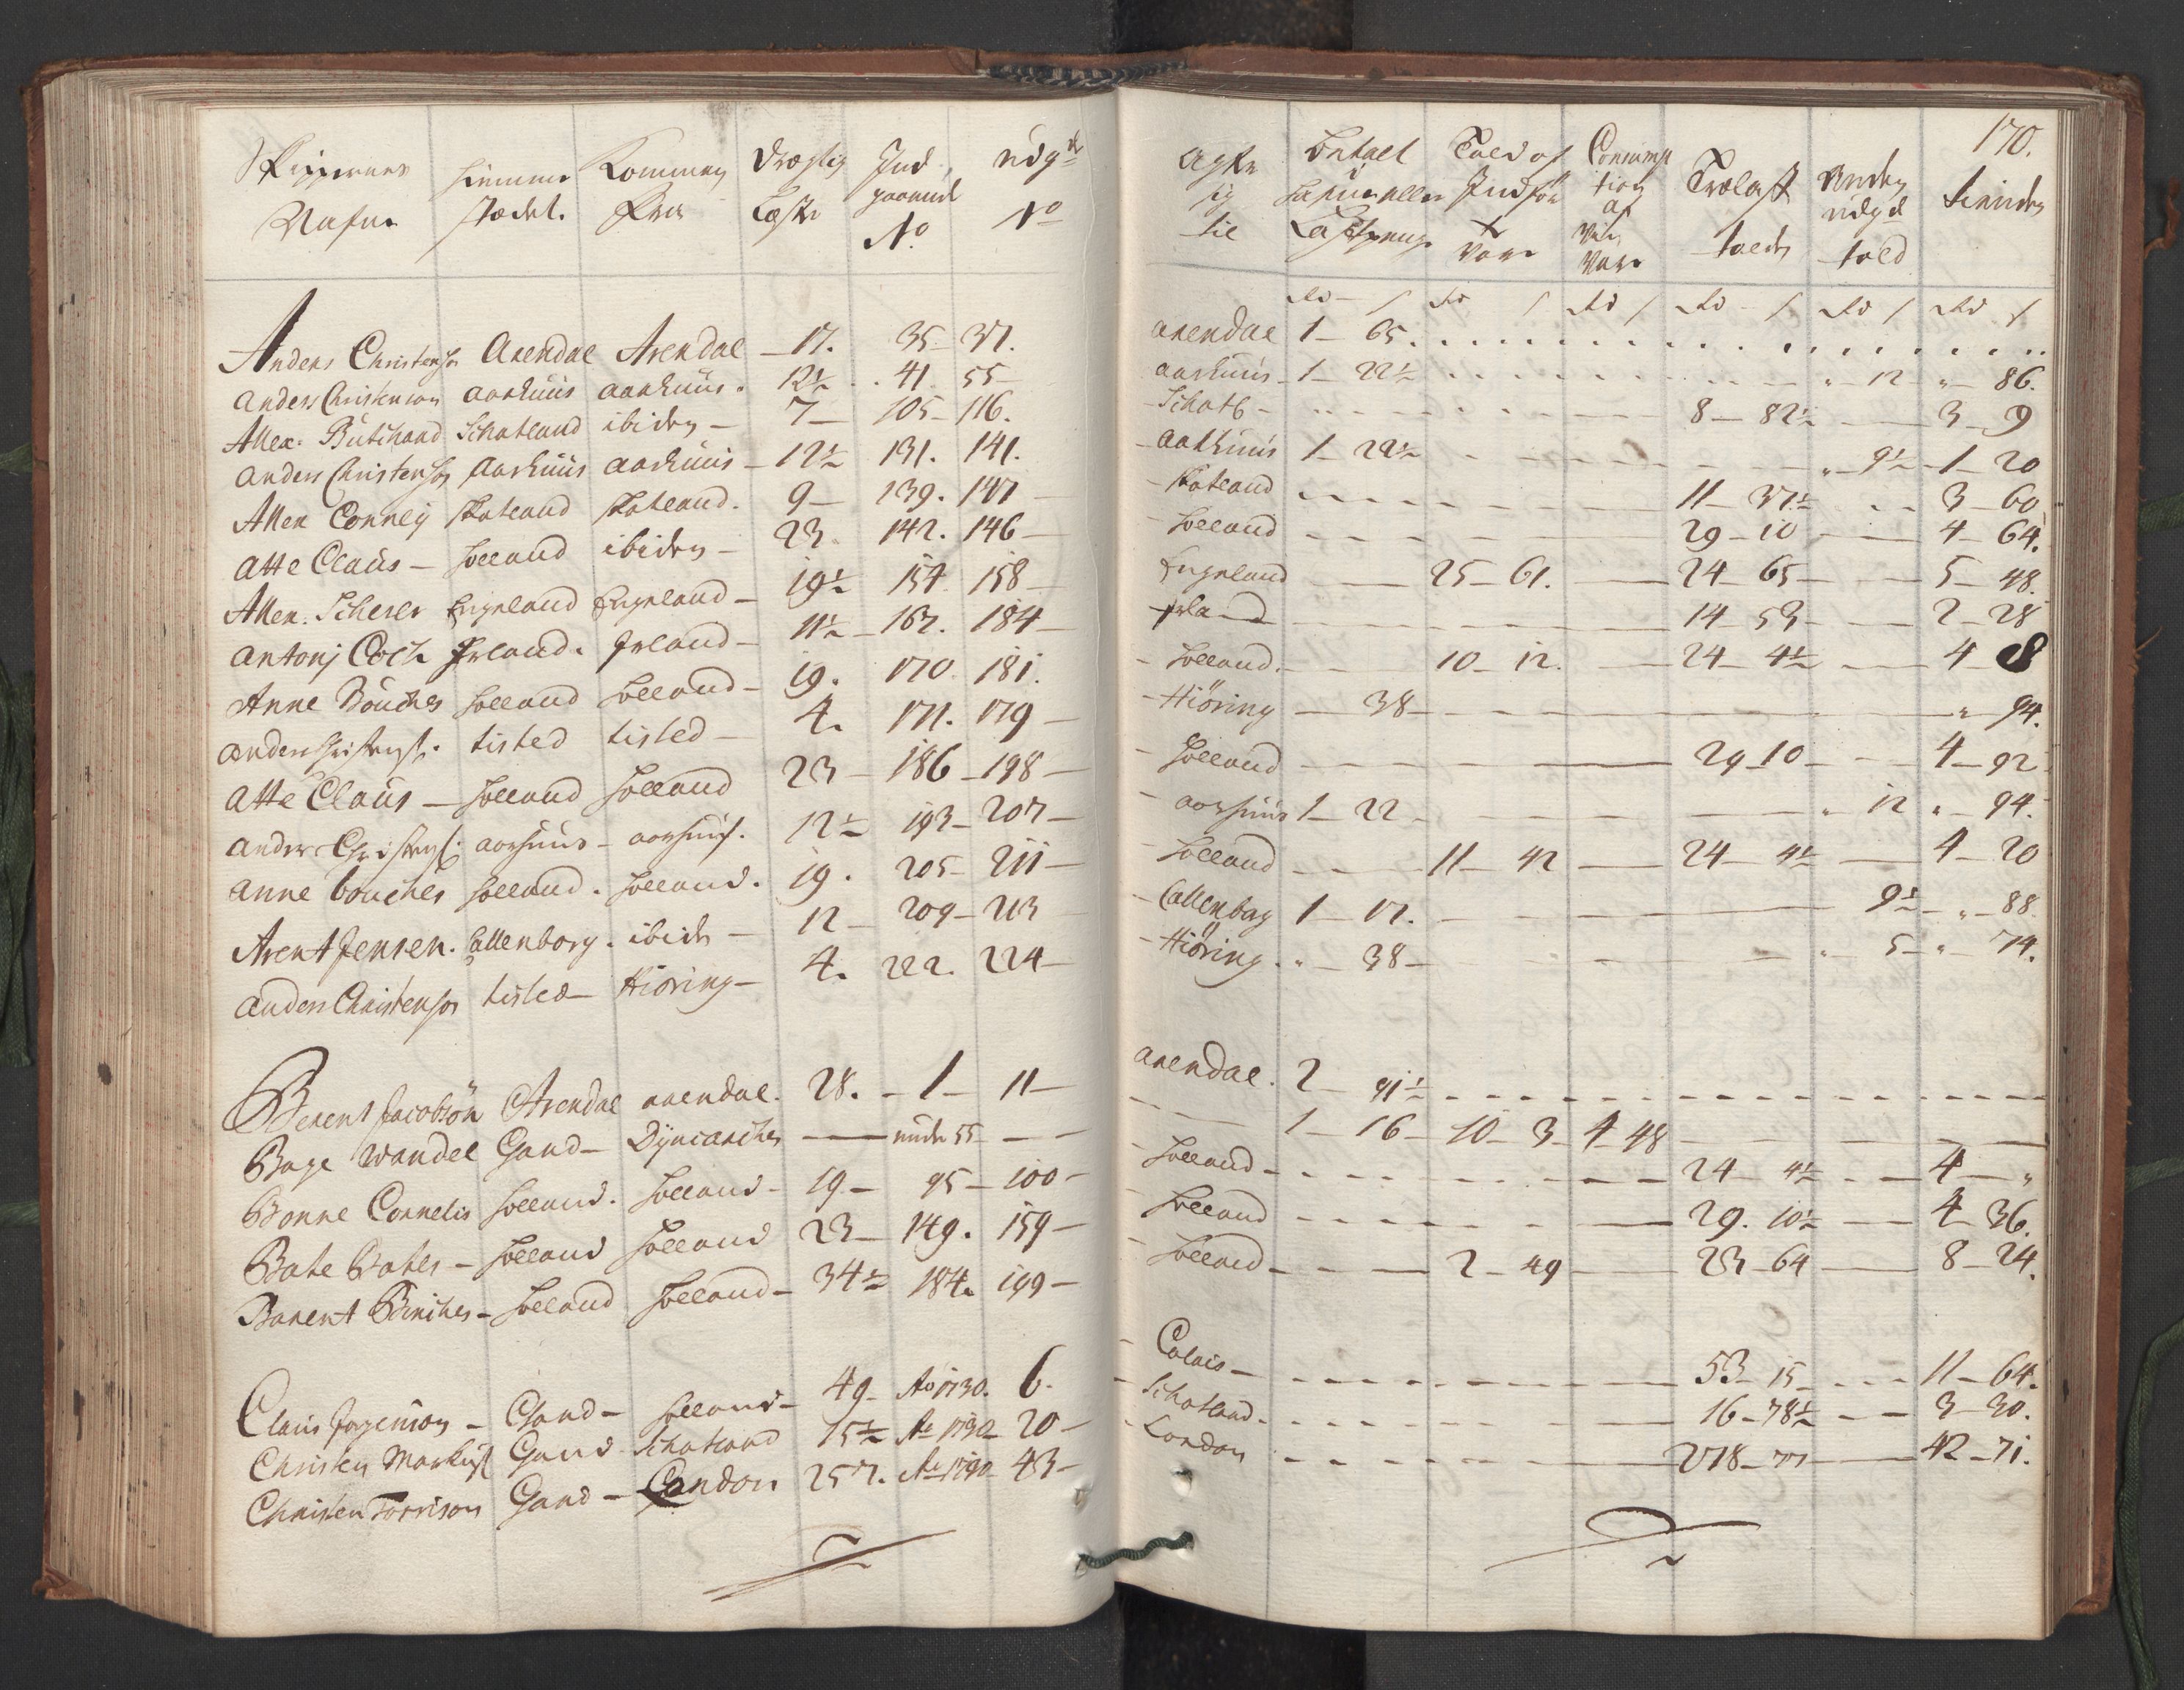 170.
Skippernes Nafne
Hiemme stædet.
Kommen Fra
Drægtig Læster
Ind gaaende No
udg de No
Agter sig til
Told af Indför te Vare
Consumption af Vare
Trælast tolden
Anden udgd told
Rd / Rd / Rd / Rd / Rd / Rd /
Anders Christensen Arendal Arendal 17. 35 37. Arendal 1 65.
Anders Christenson Aarhuus Aarhuus. 12½ 41 55 Aarhuus 1 22½ " 12 " 86.
Allex: Butchard Schatland ibidem 7 105 116. Schotl 8 82½ 3 9
Anders Christensen Aarhuus Aarhuus 12½ 131. 141. Aarhuus 1 22½ " 9½ 1 20
Allex Conney Skatland Skatland. 9 139. 147 Skatland 11 37½ 3 60
Atte Claus Holland ibidem 23. 142. 146 Holland 29 10 4 64.
Allex. Scherer Engeland Engeland 19½ 157 158 Engeland 25 61. 24 65 5 48.
Antonj Coch Irland. Irland 11½ 167. 184 Irland 14 53 2 28
Anne Bouches Holland Holland 19. 170. 181. Holland. 10 12. 24 4½ 4 8
Anders Christens: tisted tisted 4. 171. 179 Hiöring 38 " 94.
Atte Claus Holland Holland 23 186 198 Holland 29 10 4 92
Anders Christens: Aarhuus Aarhuus. 12½ 193 207 Aarhuus 1 22 " 12 " 94.
Anne bouches Holland. Holland. 19. 205 211 Holland 11 42 24 4½ 4 20
Arent Jensen. Callenborg. ibidem 12 209 213 Callenbag 1 17. 9½ " 88
Anders Christensen tisted Hiöring 4. 222. 224 Hiöring. " 38 " 5 " 74.
Berent Jacobsön Arendal Arendal. 28. 1 11 Arendal. 2 91½
Boye Wandel Gand Dyncarchen under 55 1 16 10 3 4 48
Bonne Cornelis Holland. Holland 19 95 100 Holland 24 4½ 4 "
Bate Bates Holland Holland 23 149. 159 Holland 29. 10½ 4 36.
Barent Holland Holland 34½ 184. 199 Holland 2 49 23 64 8 24.
Claus Jörgenson Gand Holland 49 Ao 1730. 6. Calais 53 15 11 64.
Christen Gand Schatland 15½ Ao 1730 20 Schatland 16 78½ 3 30.
Christen Torrison Gand London 257. Ao 1730 43 London 278 77 42 71.